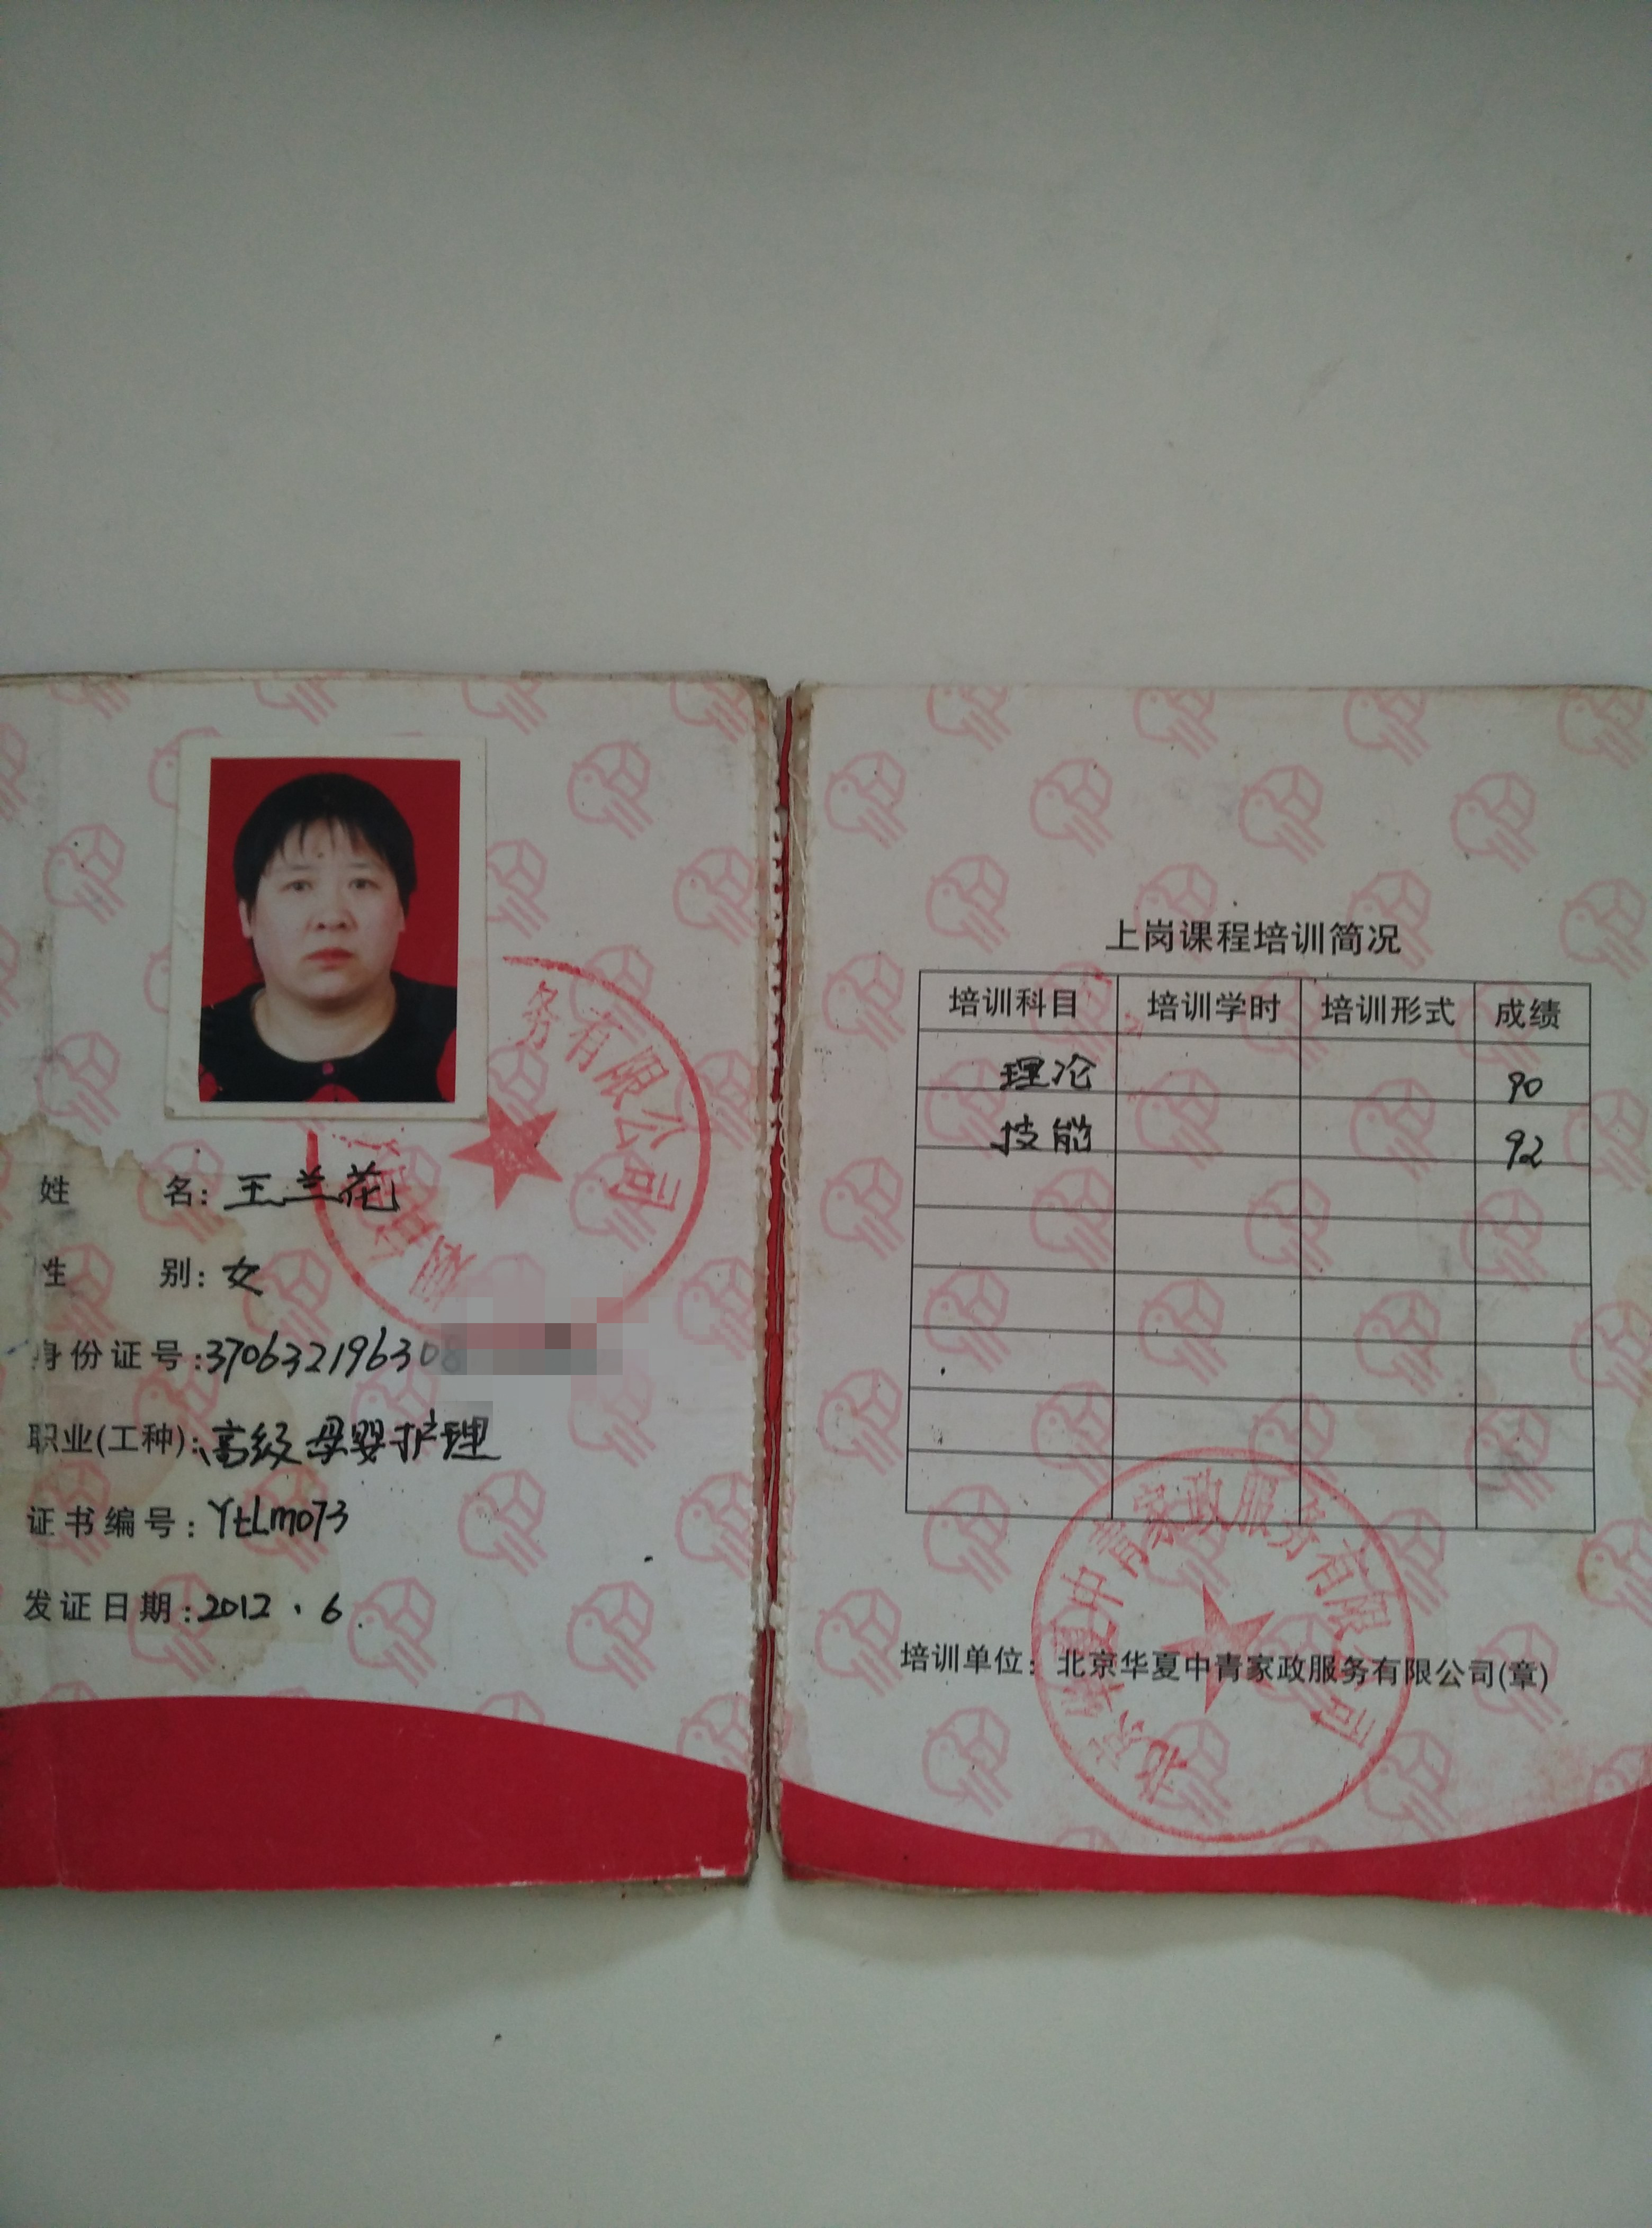 务有限公司
姓名：王兰花
性别：女
身份证号：37063219630
职业(工种)：高级母婴护理
证书编号：YtLm073
发证日期：2012．6
上岗课程培训简况
培训科目 培训学时 培训形式 成绩
理论 90
技能 92
北京华夏中青家政服务有限公司
培训单位：北京华夏中青家政服务有限公司(章)